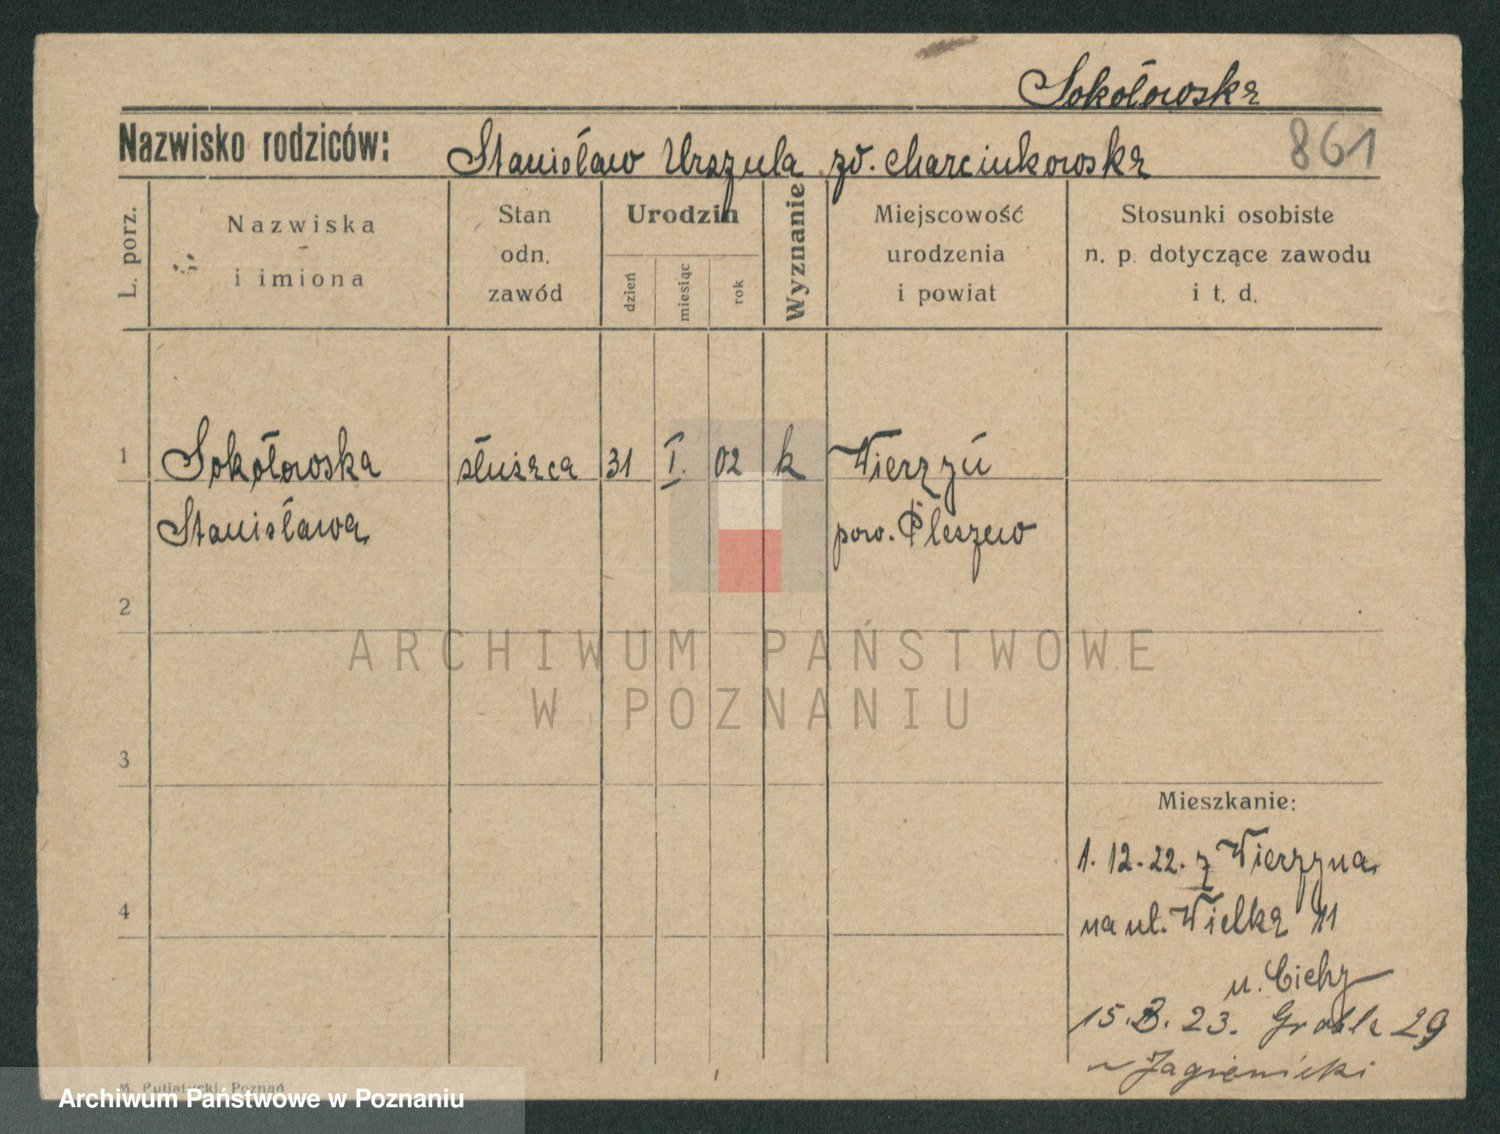 Sokołowska
Nazwisko rodziców: Stanisław Urszula zd. Marcinkowska
861
L. porz.
Nazwiska i imiona
Stan odn. zawód
Urodzin
dzień
miesiąc
rok
Wyznanie
Miejscowość urodzenia i powiat
Stosunki osobiste n. p. dotyczące zawodu i t. d.
1 Sokołowska służąca 31 I. 02 k Wierzyń
Stanisława pow. Pleszew
2
ARCHIWUM PAŃSTWOWE
W POZNANIU
3
Mieszkanie:
1. 12. 22. z
4
na ul. Wielka 11
u. Cichy
15. 23. Grobla 29
M. Putiatycki, Poznań
Archiwum Państwowe w Poznaniu